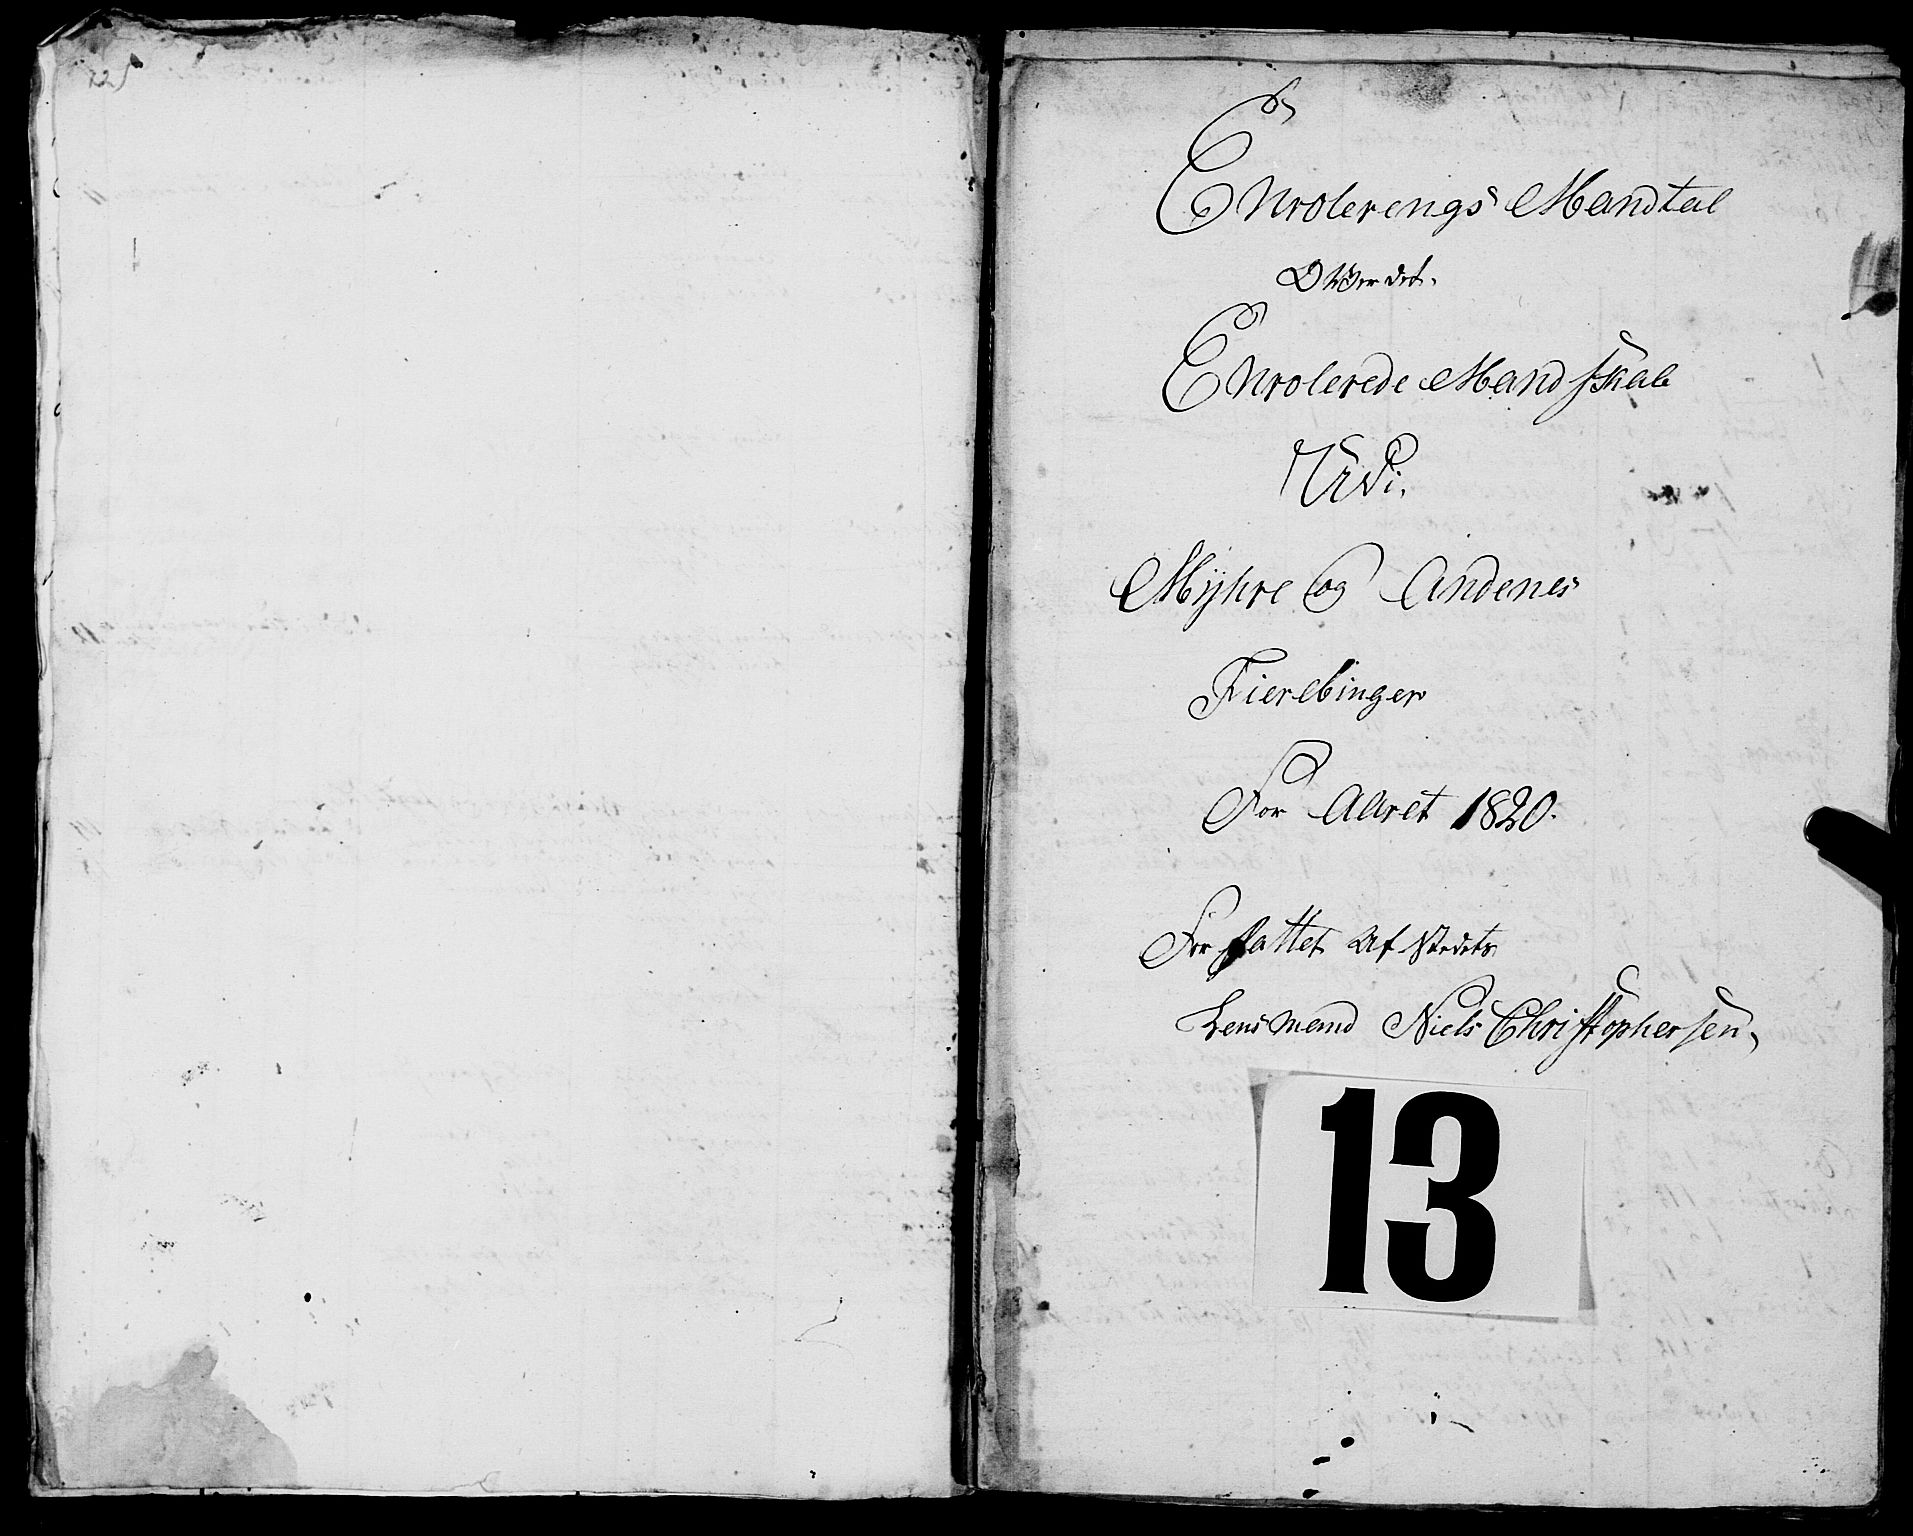 Enrolerings Mandtal
Over det
Enrolerede Mandskab
Udi
Myhre og Andenes
Fierdinger
For Aaret 1820.
Forfattet Af Stedets
Lensmand Niels Christophersen,
13